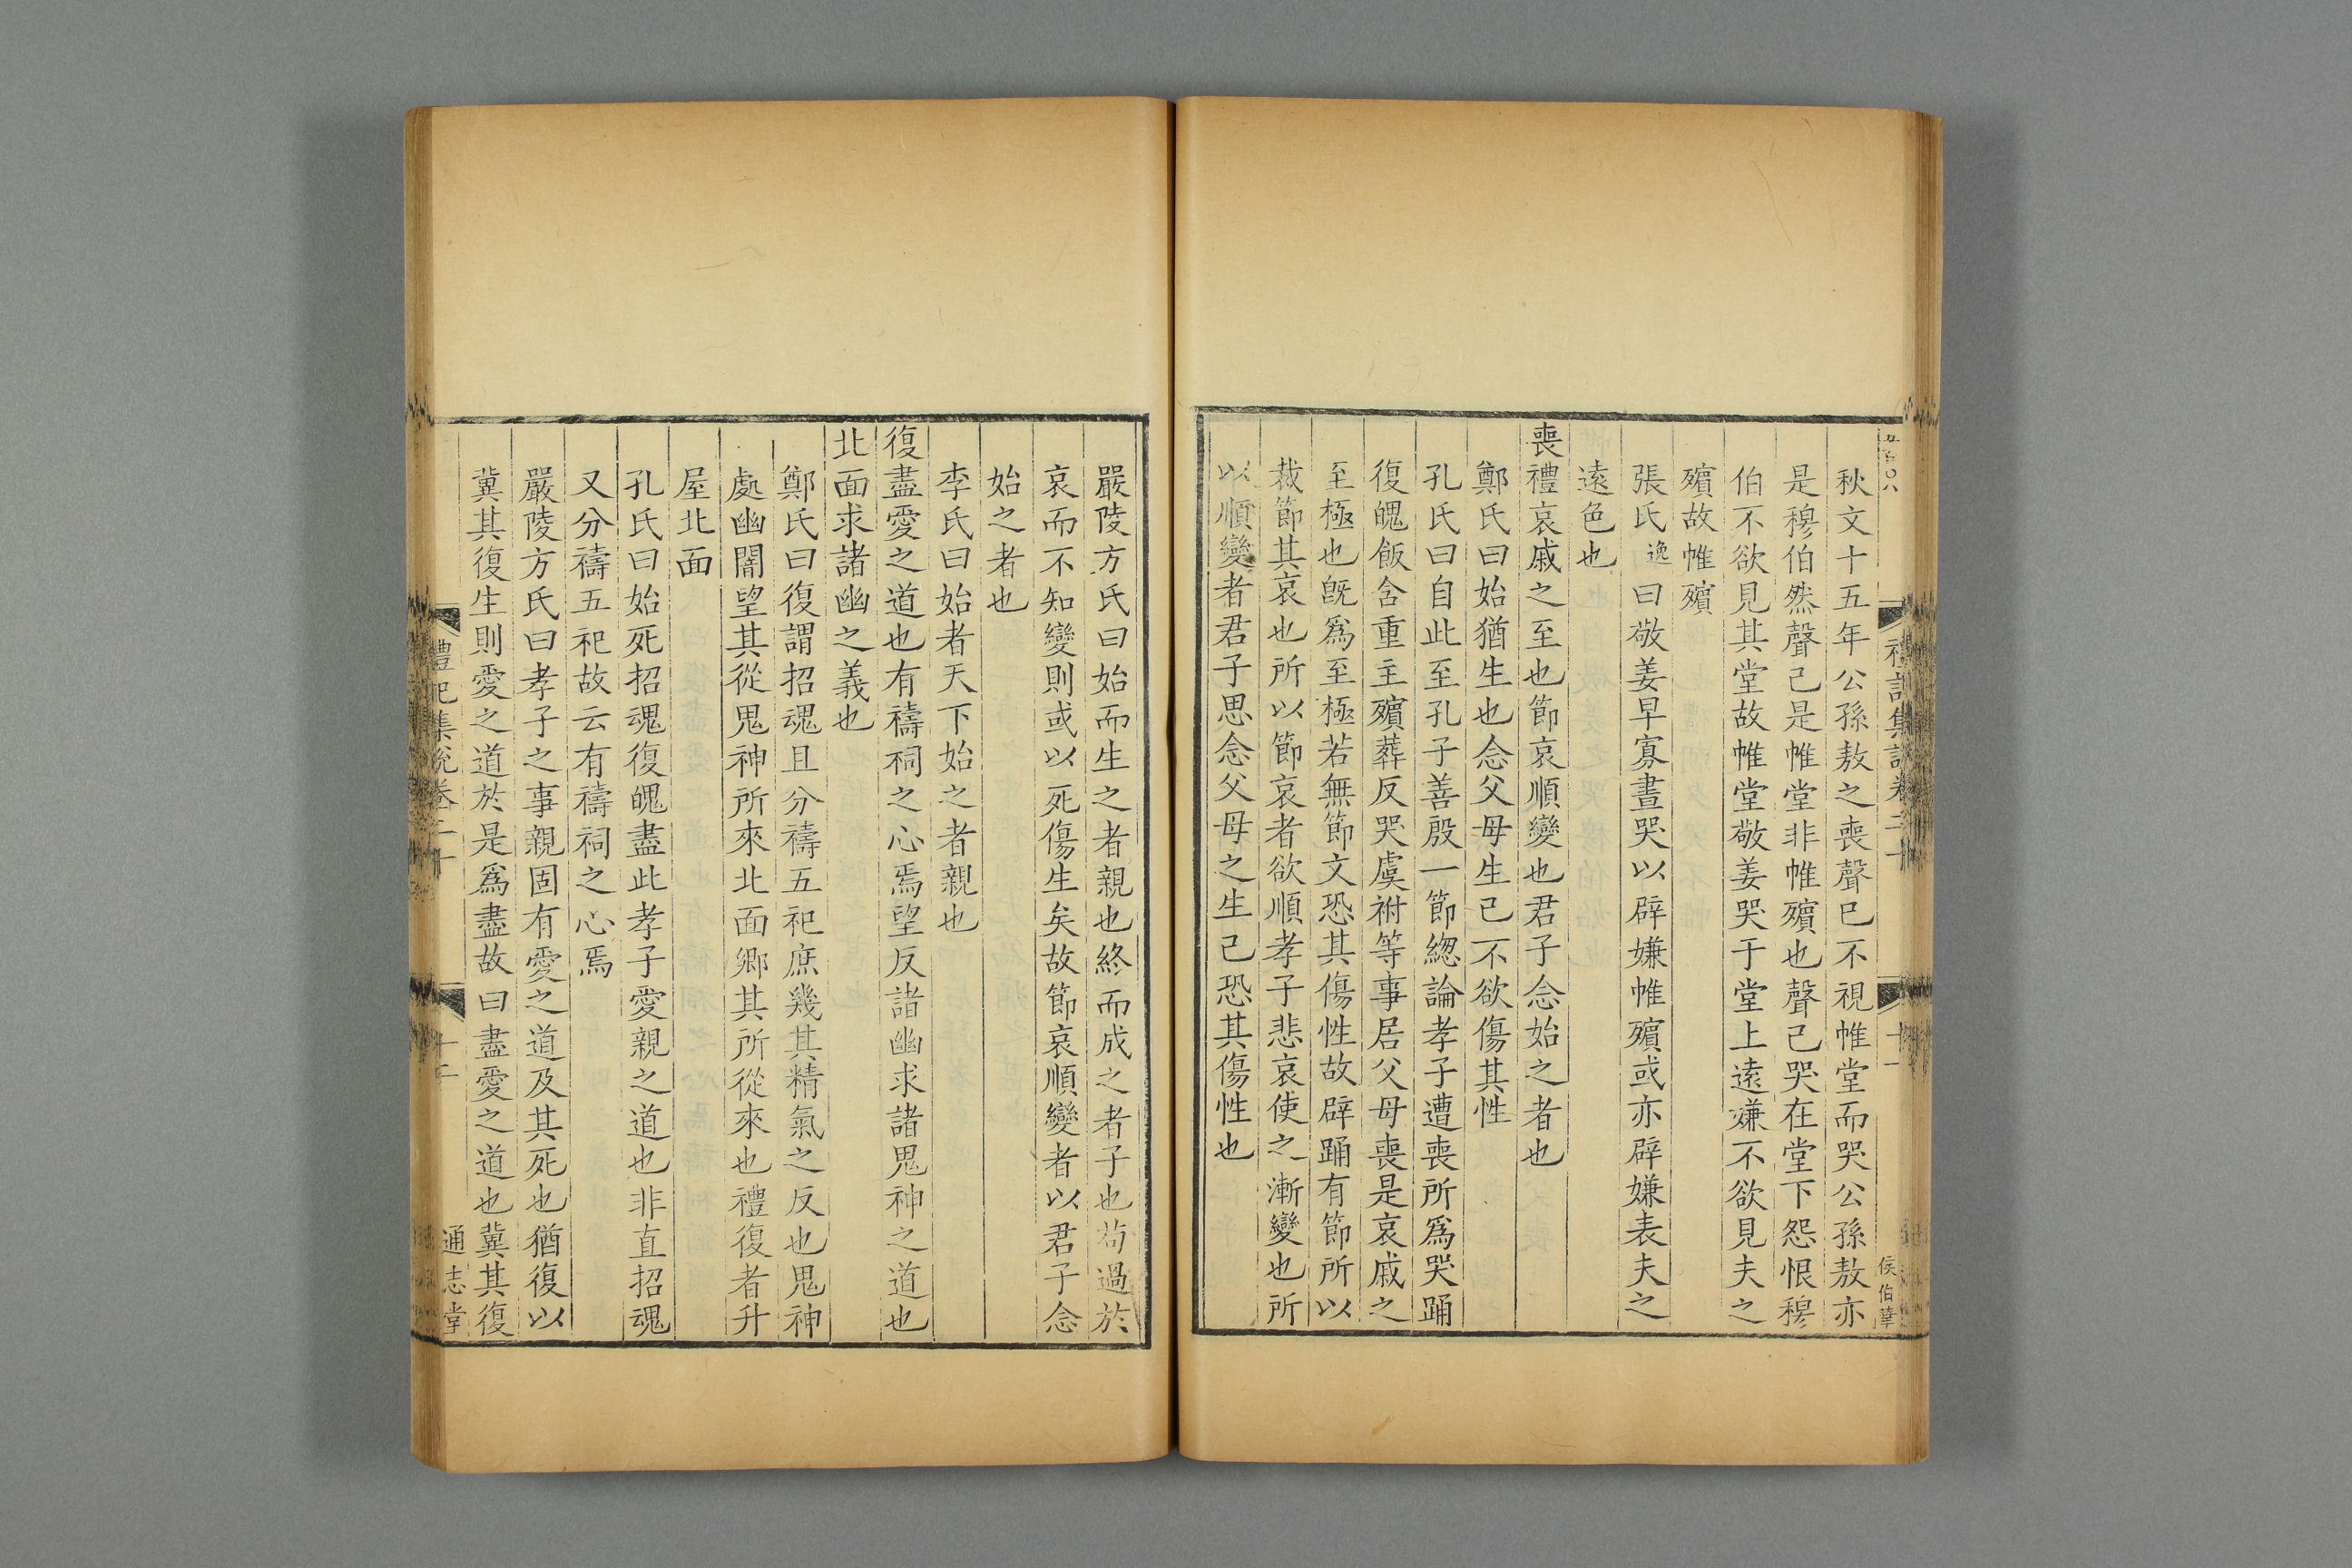 秋文十五年公孫敖之喪聲已不視帷堂而哭公孫敖亦
是穆伯然聲己是帷堂非帷殯也聲己哭在堂下怨恨穆
伯不欲見其堂故帷堂敬姜哭于堂上遠嫌不欲見夫之
殯故帷殯
張氏逸曰敬姜早寡晝哭以辟嫌帷殯或亦辟嫌表夫之
遠色也
喪禮哀戚之至也節哀順變也君子念始之者也
鄭氏曰始猶生也念父母生己不欲傷其性
孔氏曰自此至孔子善殷一節緫論孝子遭喪所爲哭踊
復魄飯含重主殯葬反哭虞祔等事居父母喪是哀戚之
至極也旣爲至極若無節文恐其傷性故辟踊有節所以
裁節其哀也所以節哀者欲順孝子悲哀使之漸變也所
以順變者君子思念父母之生己恐其傷性也
侯伯華
嚴陵方氏曰始而生之者親也終而成之者子也茍過於
哀而不知變則或以死傷生矣故節哀順變者以君子念
始之者也
李氏曰始者天下始之者親也
復盡愛之道也有禱祠之心焉望反諸幽求諸鬼神之道也
北面求諸幽之義也
鄭氏曰復謂招魂且分禱五祀庶幾其精氣之反也鬼神
處幽闇望其從鬼神所來北面鄉其所從來也禮復者升
屋北面
孔氏曰始死招魂復魄盡此孝子愛親之道也非直招魂
又分禱五祀故云有禱祠之心焉
嚴陵方氏曰孝子之事親固有愛之道及其死也猶復以
冀其復生則愛之道於是爲盡故曰盡愛之道也冀其復
禮記集說卷二十 十二 通志堂